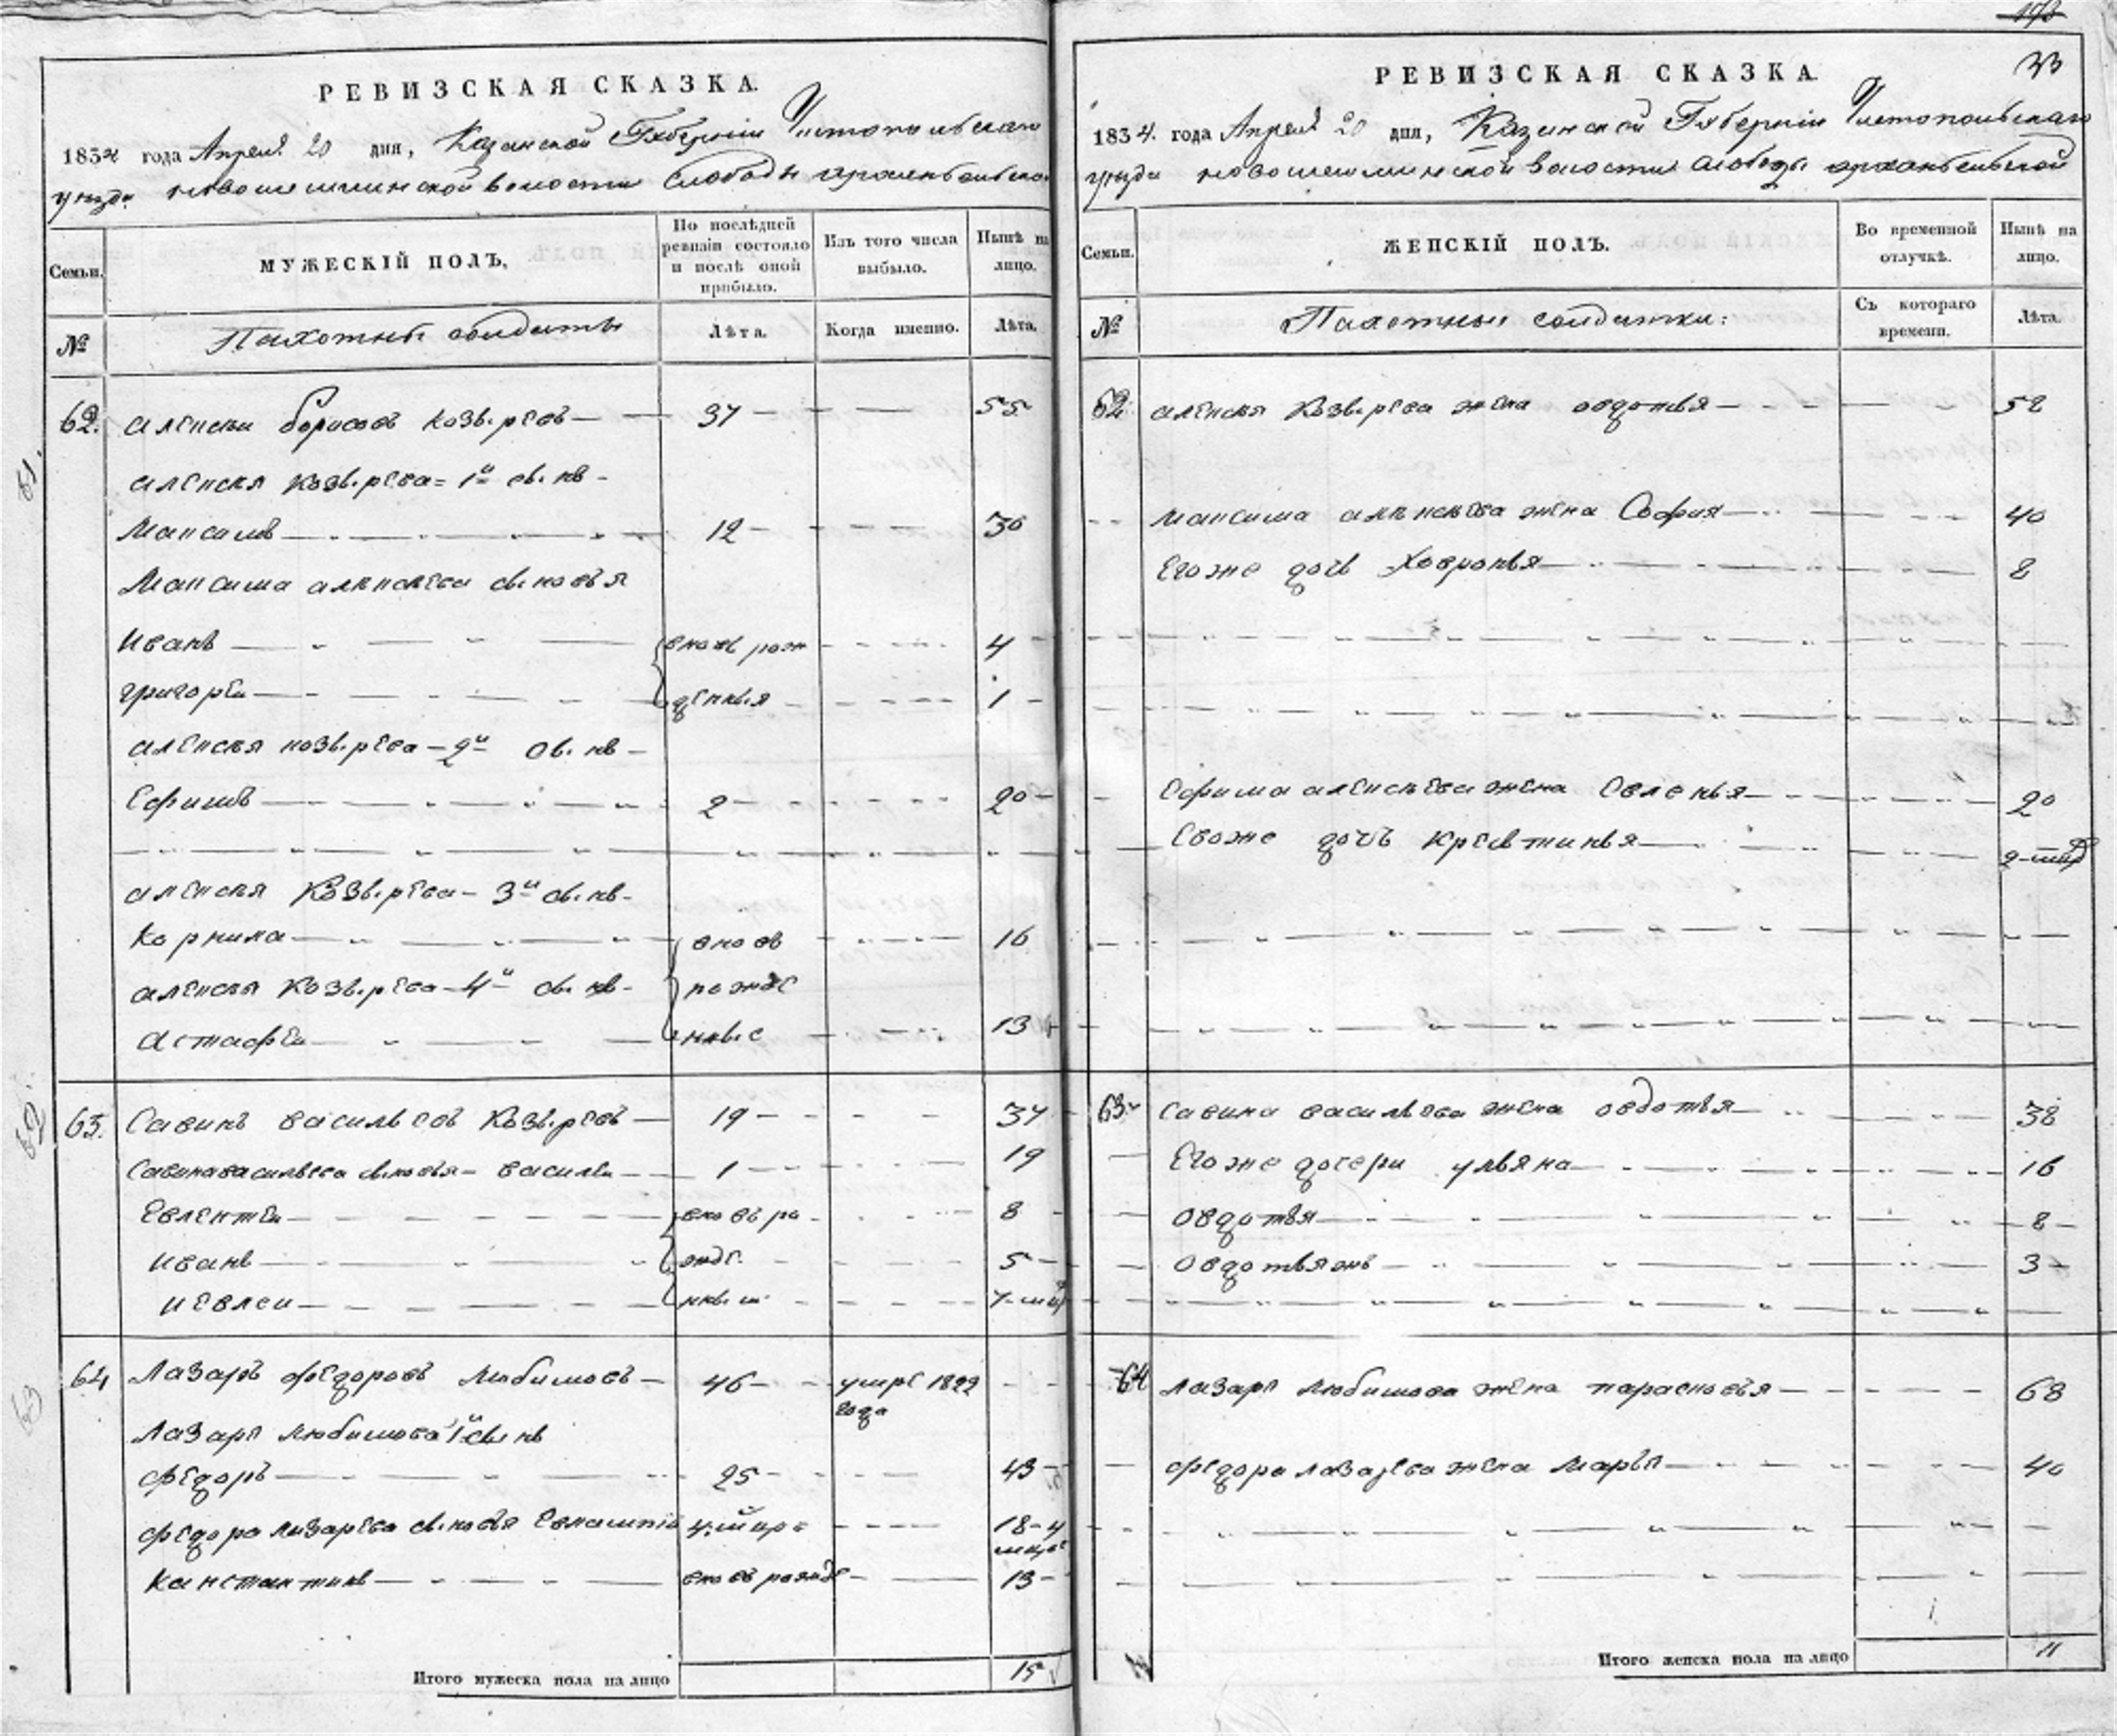 РЕВИЗСКАЯ СКАЗКА.
1834 года Апреля 20 дня, Казанской Губернiи Чистопольскаго
уезда новошешминской волости Слободы архангельской
Семьи. МУЖЕСКІЙ ПОЛЪ. По послѣдней ревизіи состояло и послѣ оной прибыло. Изъ того числа выбыло. Нынѣ на лицо.
№ Пахотныя солдаты Лѣта. Когда именно. Лѣта.
62. алексеи борисовъ козыревъ — 37 — — 55
алексея козырева = 1й сынъ —
Максимъ — 12 — — 30
Максима алексѣева сыновья
Иванъ — вновь рож — 4
григореи — денныя — 1 —
алексея козырева — 2й сынъ —
Ефимъ — 2 — — 20 —
алексея Козырева — 3й сынъ —
Корнила — вновь — 16
алексея Козырева — 4й сынъ — рожде
астафеи — нные — 13
63. Савинъ васильевъ Козыревъ — 19 — — 37
Савинавасильева сыновья — василеи — 1 — — 19
Евлентеи — вновь ро — 8 —
иванъ — жде — 5 —
иевлеи — нные — 7-мцъ
64 Лазарь федоровъ Любимовъ — 46 — умре 1822
года
Лазаря Любимова 1й сынъ
федоръ — 25 — — 43 —
федора лазарева сыновья 4.мцъ — 18-4
мцъ
Канстантинъ — вновь рожде — 13 —
Итого мужеска пола на лицо 15
33
РЕВИЗСКАЯ СКАЗКА.
1834. года Апреля 20 дня, Казанской Губернiи Чистопольскаго
уезда новошешминской волости слободы архангельской
Семьи. ЖЕНСКІЙ ПОЛЪ. Во временной отлучкѣ. Нынѣ на лицо.
№ Пахотныя солдатки: Съ котораго времени. Лѣта.
62 алексея Козырева жена овдотья — 52
максима алексѣева жена София — 40
Егоже дочь Ховронья — 8
Ефима алексѣева жена Овленья — 20
Егоже дочь Крестинья — 2-мцъ
63. савина васильева жена овдотья — 38
Егоже дочери ульяна — 16
Овдотья — 8 —
Овдотьяжъ — 3 —
64 лазаря любимова жена парасковья — 68
федора лазарева жена марья — 40
Итого женска пола на лицо 11